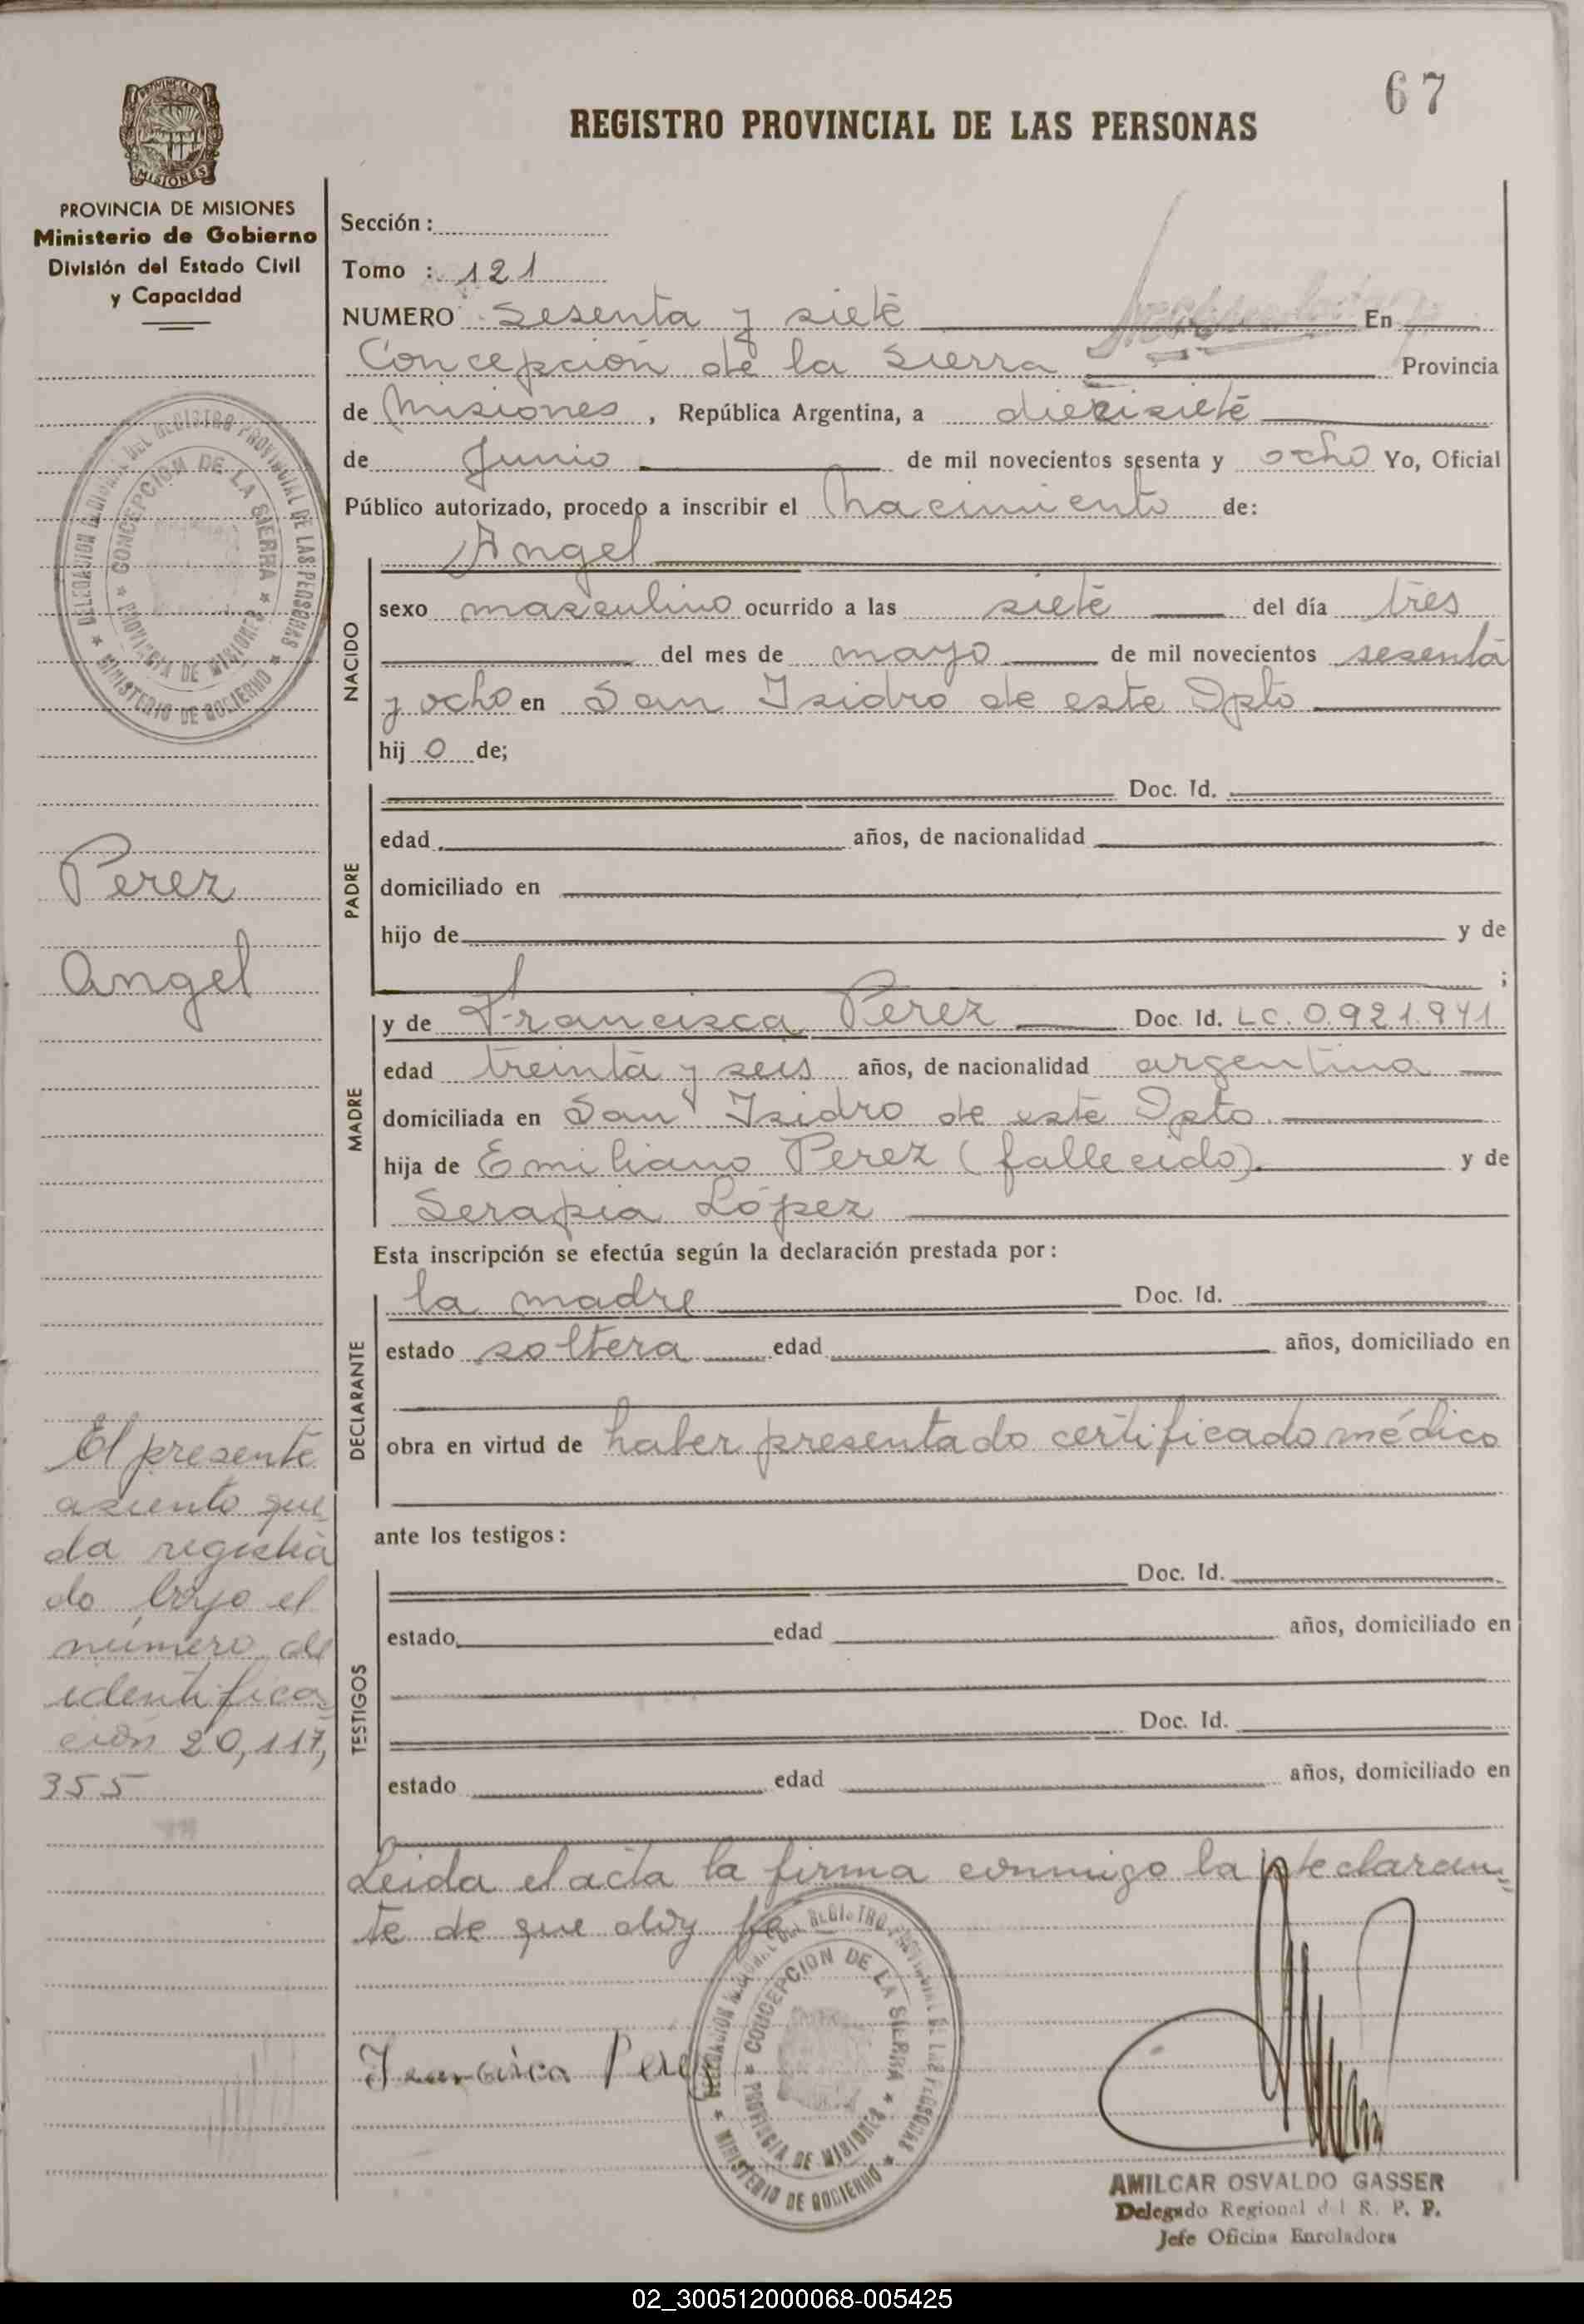 67
REGISTRO PROVINCIAL DE LAS PERSONAS
PROVINCIA DE
MISIONES
PROVINCIA DE MISIONES
Ministerio de Gobierno
División del Estado Civil
y Capacidad
Sección:
Tomo : 121
NUMERO Sesenta y siete En
Concepción de la Sierra Provincia
de Misiones, República Argentina, a diecisiete
de Junio de mil novecientos sesenta y ocho Yo, Oficial
Público autorizado, procedo a inscribir el Nacimiento de:
DELEGACION REGIONAL DEL REGISTRO PROVINCIAL DE LAS PERSONAS
CONCEPCION DE LA SIERRA
PROVINCIA DE MISIONES
MINISTERIO DE GOBIERNO
NACIDO
Angel
sexo masculino ocurrido a las siete del día tres
del mes de mayo de mil novecientos sesenta
y ocho en San Isidro de este Dpto
hij o de;
PADRE
Doc. Id.
edad años, de nacionalidad
domiciliado en
hijo de y de
;
Perez
Angel
MADRE
y de Francisca Perez Doc. Id. LC. 0.921.941
edad treinta y seis años, de nacionalidad argentina
domiciliada en San Isidro de este Dpto.
hija de Emiliano Perez (fallecido) y de
Serapia López
Esta inscripción se efectúa según la declaración prestada por:
DECLARANTE
la madre Doc. Id.
estado soltera edad años, domiciliado en
obra en virtud de haber presentado certificado médico
ante los testigos:
TESTIGOS
Doc. Id.
estado edad años, domiciliado en
Doc. Id.
estado edad años, domiciliado en
El presente
asiento que
da registra
do bajo el
número de
identifica
ción 20,117,
355
Leida el acta la firma conmigo la declaran
te de que doy fe
Francisca Perez
DELEGACION REGIONAL DEL REGISTRO PROVINCIAL DE LAS PERSONAS
CONCEPCION DE LA SIERRA
PROVINCIA DE MISIONES
MINISTERIO DE GOBIERNO
AMILCAR OSVALDO GASSER
Delegado Regional d l R. P. P.
Jefe Oficina Enroladora
02_300512000068-005425